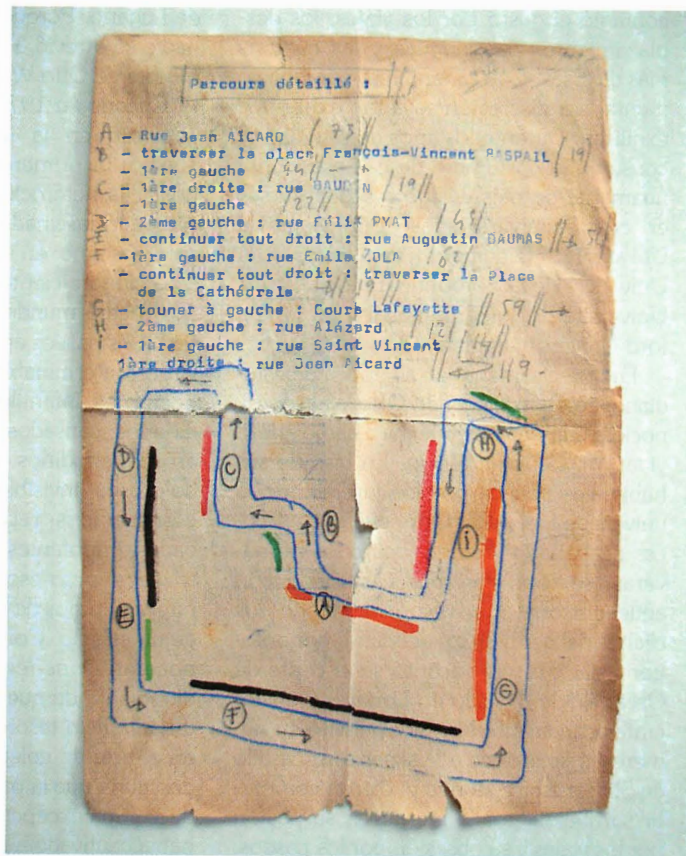 Parcours détaillé :
A - Rue Jean AICARD /73//
B - traverser la place François-Vincent RASPAIL /19/
- 1ère gauche /44//
C - 1ère droite : rue BAUDIN /19//
- 1ère gauche /22//
D - 2ème gauche : rue Félix PYAT /43/
E - continuer tout droit : rue Augustin DAUMAS
F -1ère gauche : rue Emile ZOLA /62/
- continuer tout droit : traverser la Place
de la Cathédrale /19//
G - touner à gauche : Cours Lafayette // 59 //→
H - 2ème gauche : rue Alézard /12/
i - 1ère gauche : rue Saint Vincent /14//
1ère droite : rue Jean Aicard 119.
D
C
H
B
i
A
E
G
F